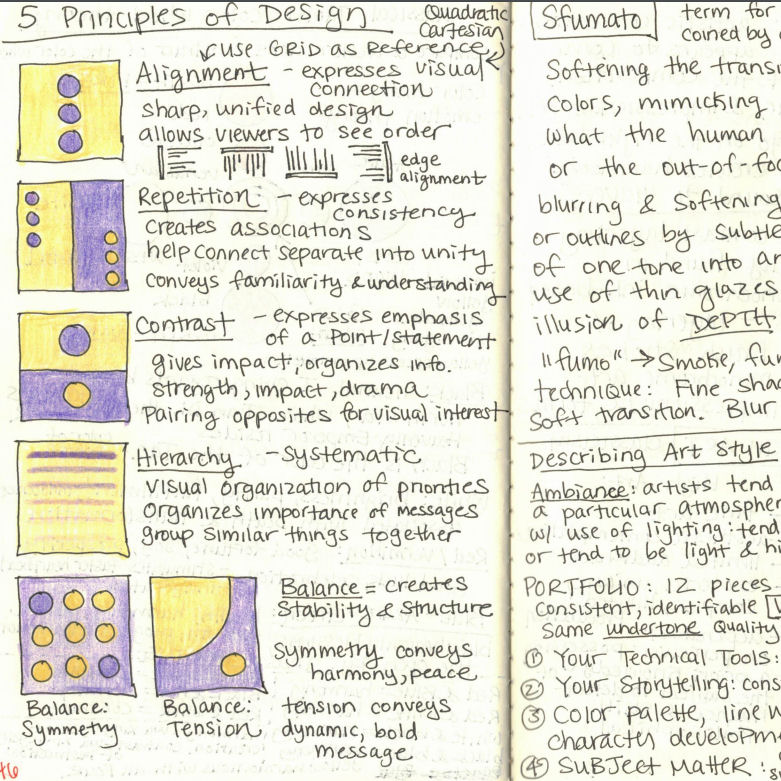 5 Principles of Design
Quadratic
Cartesian
use GRID as Reference
Alignment - expresses visual
connection
sharp, unified design
allows viewers to see order
edge
alignment
Repetition - expresses
consistency
creates associations
help connect separate into unity
conveys familiarity & understanding
Contrast - expresses emphasis
of a point/statement
gives impact, organizes info.
strength, impact, drama
Pairing opposites for visual interest
Hierarchy - Systematic
visual organization of priorities
organizes importance of messages
group similar things together
Balance = creates
Stability & structure
Symmetry conveys
harmony, peace
tension conveys
dynamic, bold
message
Balance:
Symmetry
Balance:
Tension
Sfumato
term for
coined by
Softening the transi
colors, mimicking
what the human
or the out-of-fo
blurring & Softening
or outlines by subtle
of one tone into an
use of thin glazes
illusion of DEPTH
"fumo" → Smoke, fu
technique: Fine sha
Soft transition. Blur
Describing Art Style
Ambiance: artists tend
a particular atmospher
w/ use of lighting: tend
or tend to be light & hi
PORTFOLIO: 12 pieces
Consistent, identifiable
Same undertone Quality
① Your Technical Tools:
② Your Storytelling: cons
③ Color palette, line w
character developm
④ Subject Matter: